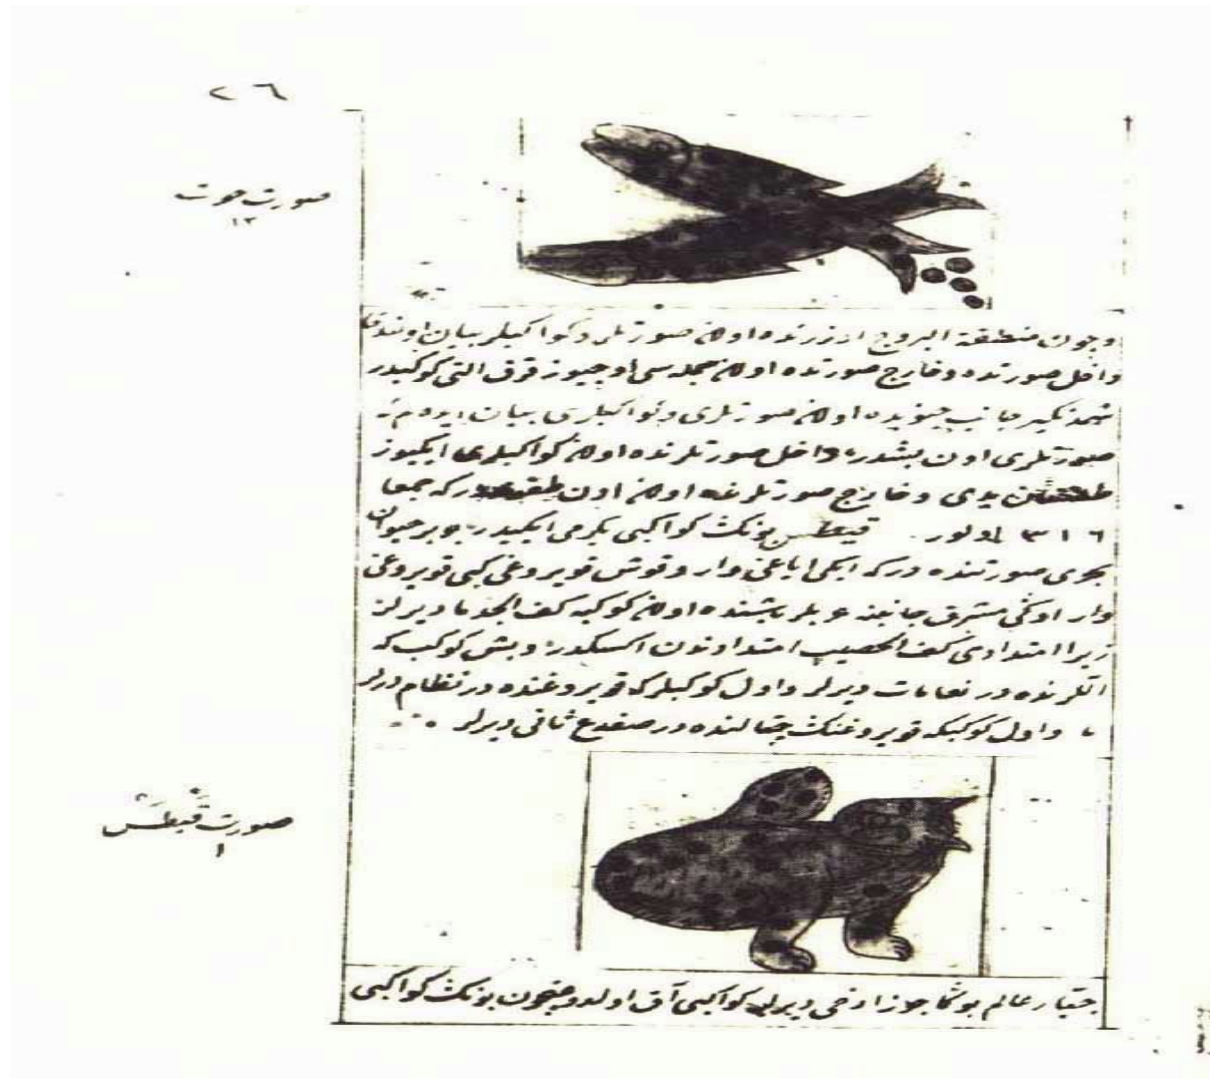 ٢٦
صورت حوت
١٢
و چون منطقة البروج اوزرنده اولان صورتلر و كواكبلر بيان اولندقدا
داخل صورتده و خارج صورتده اولان جمله سى اوچيوز قرق التى كوكبدر
شمدنكير جانب جنوبده اولان صورتلرى و كواكبلرى بيان ايده لم
صورتلرى اون بشدر داخل صورتلرنده اولان كواكبلرى ايكيوز
يدى و خارج صورتلرنده اولان اون دركه جمعا
٣١٦ اولور قيطس بونك كواكبى يكرمى ايكيدر بو بر حيوان
بحرى صورتنده دركه ايكى اياغى وار و قوش قويروغى كبى قويروغى
وار اوكى مشرق جانبنه در باشنده اولان كوكبه كف الجذما ديرلر
زيرا امتدادى كف الخصيب امتدادندن اكسكدر و بش كوكب كه
اتلرنده در نعامات ديرلر و اول كوكبلر كه قويروغنده در نظام ديرلر
و اول كوكبكه قويروغنك چتالنده در ضفدع ثانى ديرلر
صورت قيطس
١
جبار عالم بوكا جوزا دخى ديرلر كواكبى اق اولدوغيچون بونك كواكبى